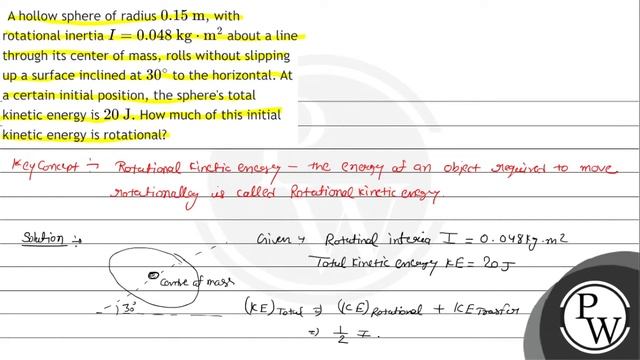 A hollow sphere of radius 0.15 m, with
rotational inertia I = 0.048 kg · m² about a line
through its center of mass, rolls without slipping
up a surface inclined at 30° to the horizontal. At
a certain initial position, the sphere's total
kinetic energy is 20 J. How much of this initial
kinetic energy is rotational?
Key Concept :- Rotational Kinetic energy - the energy of an object required to move
rotationally is called Rotational Kinetic energy.
Solution :-
Given → Rotational interia I = 0.048 kg·m²
Total kinetic energy KE = 20 J
Centre of mass
30°
(KE)Total ⇒ (KE)Rotational + KE
⇒ 1/2 I.
PW